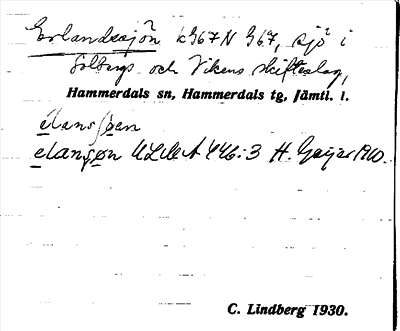 Erlandssjön k 967 N 967, sjö i
Solbergs och Vikens skifteslag,
Hammerdals sn, Hammerdals tg, Jämtl. l.
élansȷøn
elansȷøn ULMA 446:3 H. Geijer 1910.
C. Lindberg 1930.